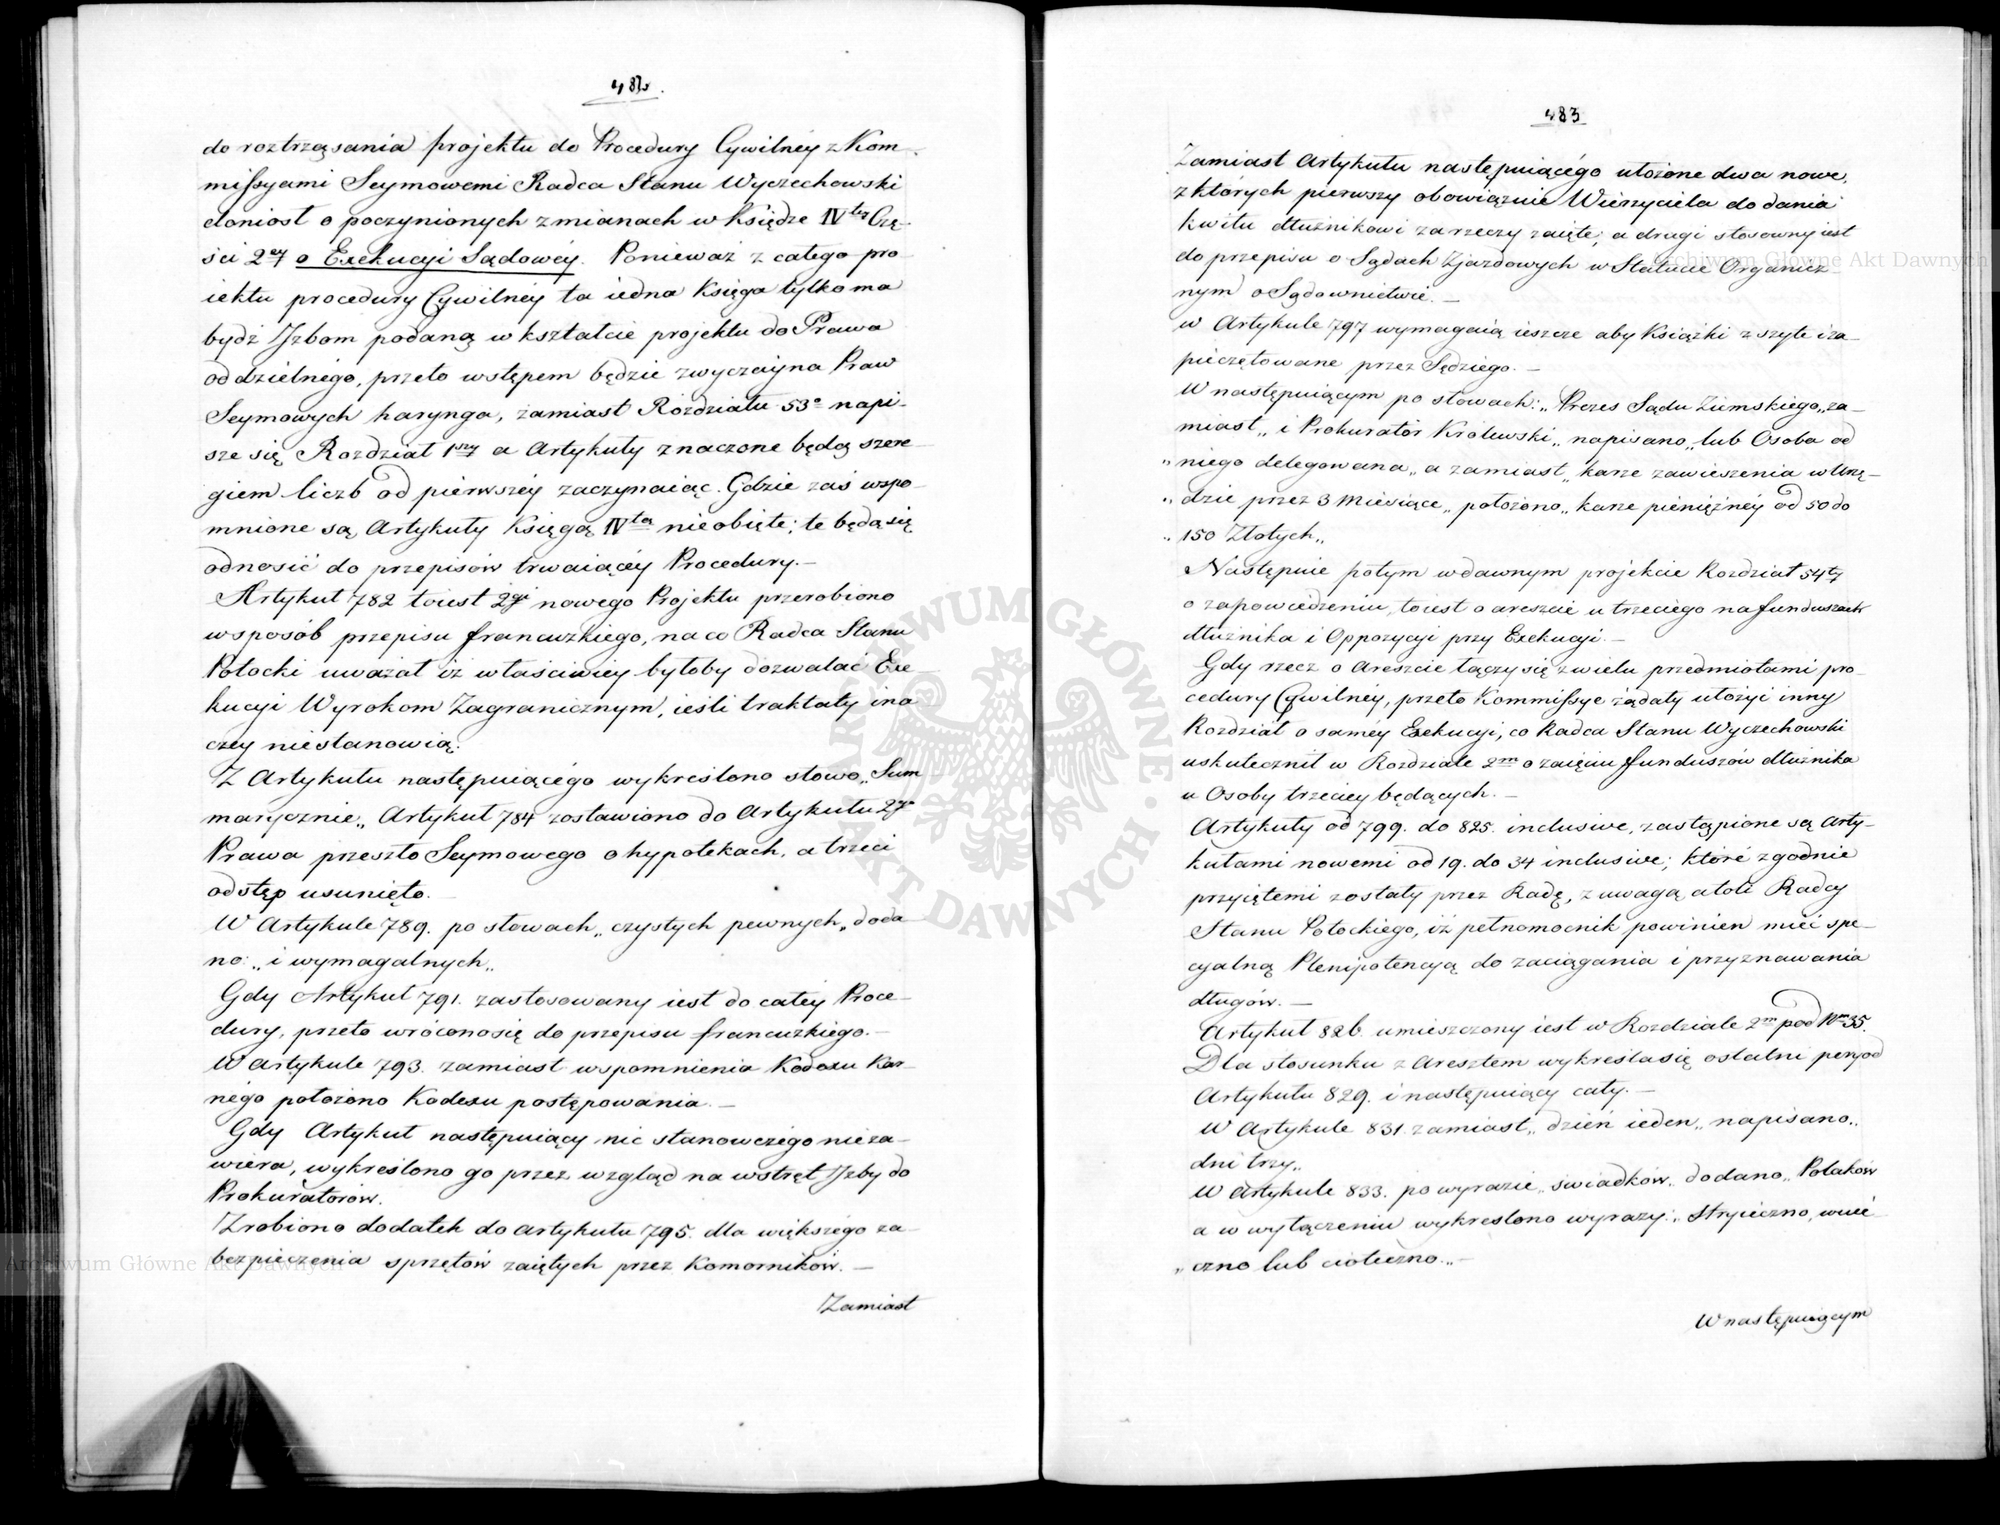 482.
do roztrząsania projektu do Procedury Cywilnéy z Kom-
missyami Seymowemi Radca Stanu Wyczechowski
doniosł o poczynionych zmianach w Księdze IVtéy Czę-
ści 2éy o Exekucyi Sądowéy. Ponieważ z całego pro-
iektu procedury Cywilnéy ta iedna Księga tylko ma
bydź Izbom podaną w kształcie projektu do Prawa
oddzielnégo, przeto wstępem będzie zwyczayna Praw
Seymowych harynga, zamiast Rozdziału 53o napi-
sze się Rozdział 1szy a Artykuły znaczone będą szere-
giem liczb od pierwszéy zaczynaiąc. Gdzie zaś wspo-
mnione są Artykuły Księgą IVtą nieobięte; te będą się
odnosić do przepisów trwaiącéy Procedury.—
Artykuł 782 toiest 2gi nowego Projektu przerobiono
wsposób przepisu francuzkiego, na co Radca Stanu
Potocki uważał iż właściwiéy byłoby dozwalać Exe-
kucyi Wyrokom Zagranicznym, ieśli traktaty ina-
czéy niestanowią.
Z Artykułu następuiącégo wykreślono słowo „Sum-
marycznie„ Artykuł 784 zostawiono do Artykułu 2go
Prawa przeszło Seymowego o hypotekach, a trzeci
odstęp usunięto.—
W Artykule 789. po słowach „czystych pewnych„ doda-
no: „i wymagalnych„
Gdy Artykuł 791. zastosowany iest do całéy Proce-
dury, przeto wrócono się do przepisu francuzkiego.—
W Artykule 793. zamiast wspomnienia Kodexu Kar-
négo położono Kodexu postępowania.—
Gdy Artykuł następuiący nic stanowczégo nieza-
wiera, wykreślono go przez wzgląd na wstręt Izby do
Prokuratorów.
Zrobiono dodatek do Artykułu 795. dla większego za-
bezpieczenia sprzętów zaiętych przez Komorników.—
Zamiast
483
Zamiast Artykułu następuiącégo ułożone dwa nowe,
z których pierwszy obowiązuie Wierzyciela do dania
kwitu dłużnikowi za rzeczy zaięte; a drugi stosowny iest
do przepisu o Sądach Zjazdowych w Statucie Organicz-
nym o Sądownictwie.—
w Artykule 797 wymagaią ieszcze aby Książki zszyte i za-
pieczętowane przez Sędziego.—
W następuiącym po słowach: „Prezes Sądu Ziemskiego„ za-
miast „i Prokurator Królewski„ napisano „lub Osoba od
„niego delegowana„ a zamiast „karze zawieszenia w Urzę-
„dzie przez 3 Miesiące„ położono „karze pieniężnéy od 50 do
„150 Złotych„
Następuie potym wdawnym projekcie Rozdział 54ty
o zapowiedzeniu, toiest o areszcie u trzeciego na funduszach
dłużnika i Oppozycyi przy Exekucyi.—
Gdy rzecz o Areszcie łączy się z wielu przedmiotami pro-
cedury Cywilnéy, przeto Kommissye żądały ułożyć inny
Rozdział o saméy Exekucyi, co Radca Stanu Wyczechowski
uskutecznił w Rozdziale 2m o zaięciu funduszów dłużnika
u Osoby trzeciey będących.—
Artykuły od 799. do 825. inclusive, zastąpione są Arty-
kułami nowemi od 19. do 34 inclusive; któré zgodnie
przyiętemi zostały przez Radę, z uwagą atoli Radcy
Stanu Potockiego, iż pełnomocnik powinien mieć spe-
cyalną Plenipotencyą do zaciągania i przyznawania
długów.—
Artykuł 826. umieszczony iest w Rozdziale 2m pod Nrm 35.
Dla stosunku z Aresztem wykreśla się ostatni peryod
Artykułu 829. i następuiący cały.—
W Artykule 831. zamiast „dzień ieden„ napisano „
dni trzy„
W Artykule 833. po wyrazie „świadków„ dodano „Polaków
a w wyłączeniu wykreślono wyrazy: „stryieczno, wuie-
„czno lub cioteczno.„—
W następuiącym
Archiwum Główne Akt Dawnych
Archiwum Główne Akt Dawnych
ARCHIWUM GŁÓWNE AKT DAWNYCH